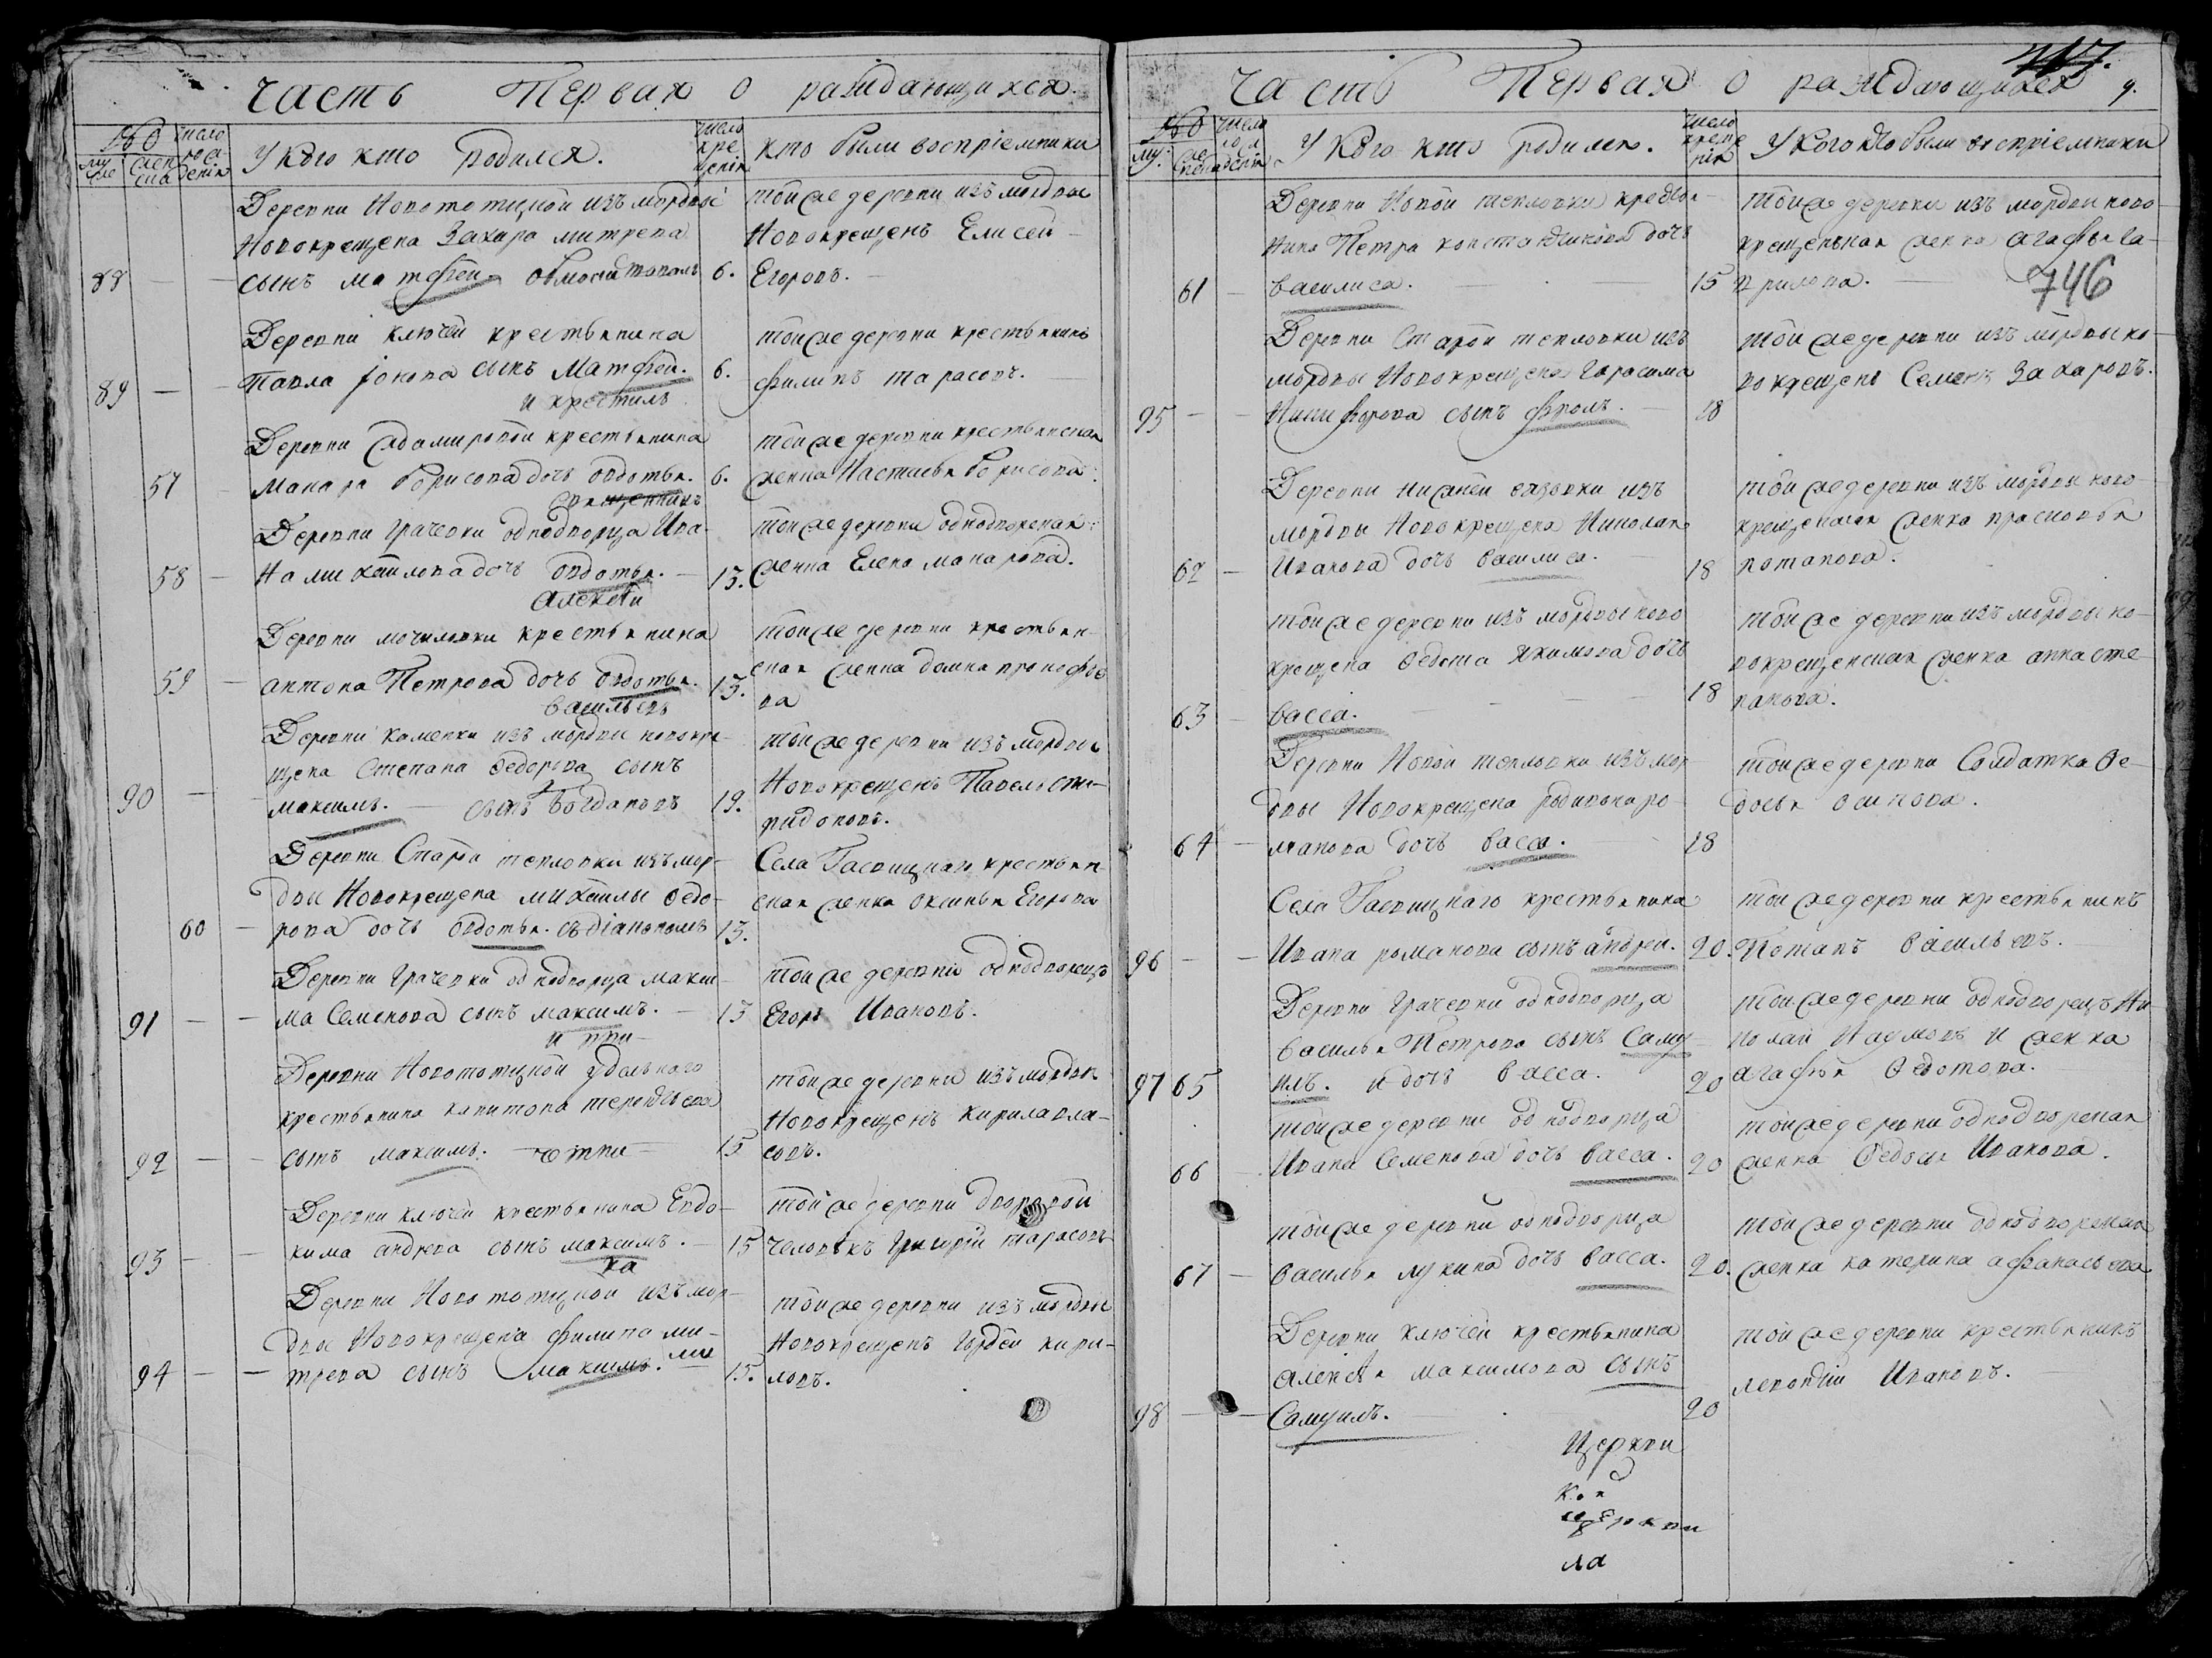 Часть Первая о раждающихся.
число
му
жен
У кого кто родился.
число
кре
щения
кто были воспріемники
Деревни Новототцкой изъ мордвы
Новокрещена Захара митрева
88 — — сынъ матфей. 6.
той же деревни изъ мордвы
Новокрещенъ Елисей
Егоровъ.
Деревни ключей крестьянина
89 — Павла сынъ Матфей. 6.
и крестилъ
той же деревни крестьянинъ
филипъ тарасовъ.
Деревни Садамировой крестьянина
57 Макара борисова дочь овдотья. 6.
священникъ
той же деревни крестьянская
женка Настасья борисова.
Деревни грачевки однодворца Ива-
58 — на михайлова дочь овдотья. — 13.
алексей
той же деревни однодворская
женка Елена макарова.
Деревни мочиловки крестьянина
59 — антона Петрова дочь овдотья. 13.
васильевъ
той же деревни крестьян-
ская женка домна прокофье
ва
Деревни каменки изъ мордвы новокре-
щена Степана Ѳедорова сынъ
90 — — максимъ. — сынъ богдановъ 19.
той же деревни изъ мордвы
Новокрещенъ Павелъ спи-
ридоновъ.
Деревни Старой тепловки изъ мор-
двы Новокрещена михайлы Ѳедо-
60 — рова дочь овдотья. съ діакономъ 13.
Села Гасвицкаго крестьян-
ская женка оксинья Егорова
Деревни грачевки однодворца макси-
91 — — ма Семенова сынъ максимъ. — 13
и при
той же деревни однодворецъ
Егоръ Ивановъ.
Деревни Новототцкой удельнаго
крестьянина капитона терентьева
92 — — сынъ максимъ. — 15
той же деревни изъ мордвы
Новокрещенъ кирила вла-
совъ.
Деревни ключей крестьянина Евдо-
93 — — кима андреева сынъ максимъ. — 15
ка
той же деревни дворовой
человѣкъ Григорій тарасовъ
Деревни Новототцкой изъ мор-
двы Новокрещена филипа ми-
94 — — трева сынъ максимъ. ми 15.
той же деревни изъ мордвы
Новокрещенъ гордей кири-
ловъ.
717.
Часть Первая о раждающихся 9.
число
му:
У кого кто родился.
число
креще
нія
У кого кто были воспріемники
Деревни Новой тепловки крестья-
нина Петра константинова дочь
61 — василиса. — 15
той же деревни изъ мордвы ново-
крещенская женка агафья га-
врилова. —
746
Деревни Старой тепловки изъ
мордвы Новокрещена Герасима
95 — — Никифорова сынъ фролъ. — 18
той же деревни изъ мордвы но-
вокрещенъ Семенъ Захаровъ.
Деревни нижней вязовки изъ
мордвы Новокрещена Николая
62 — Иванова дочь василиса. 18
той же деревни изъ мордвы ново-
крещенская женка прасковья
потапова.
той же деревни изъ мордвы ново
крещена Ѳедота якимова дочь
63 — васса. — — — 18
той же деревни изъ мордвы но-
вокрещенская женка анна сте-
панова.
Деревни Новой тепловки изъ мор-
двы Новокрещена родивона ро-
64 — манова дочь васса. 18
той же деревни Солдатка Ѳе-
досья осипова.
Села Гасвицкаго крестьянина
96 — — Ивана романова сынъ андрей. 20.
той же деревни крестьянинъ
Потапъ васильевъ.
Деревни Грачевки однодворца
василья Петрова сынъ Саму-
97 65 илъ. и дочь васса. 20
той же деревни однодворецъ Ни-
колай Наумовъ и женка
агафья Ѳедотова.
той же деревни однодворца
66 Ивана Семенова дочь васса. 20
той же деревни однодворская
женка Ѳедосья Иванова.
той же деревни однодворца
67 — василья лукина дочь васса. 20.
той же деревни однодворская
женка катерина афанасьева
Деревни ключей крестьянина
алексея максимова сынъ
98 — — Самуилъ. — 20
той же деревни крестьянинъ
леонтій Ивановъ.
Церкви
церкви
ла